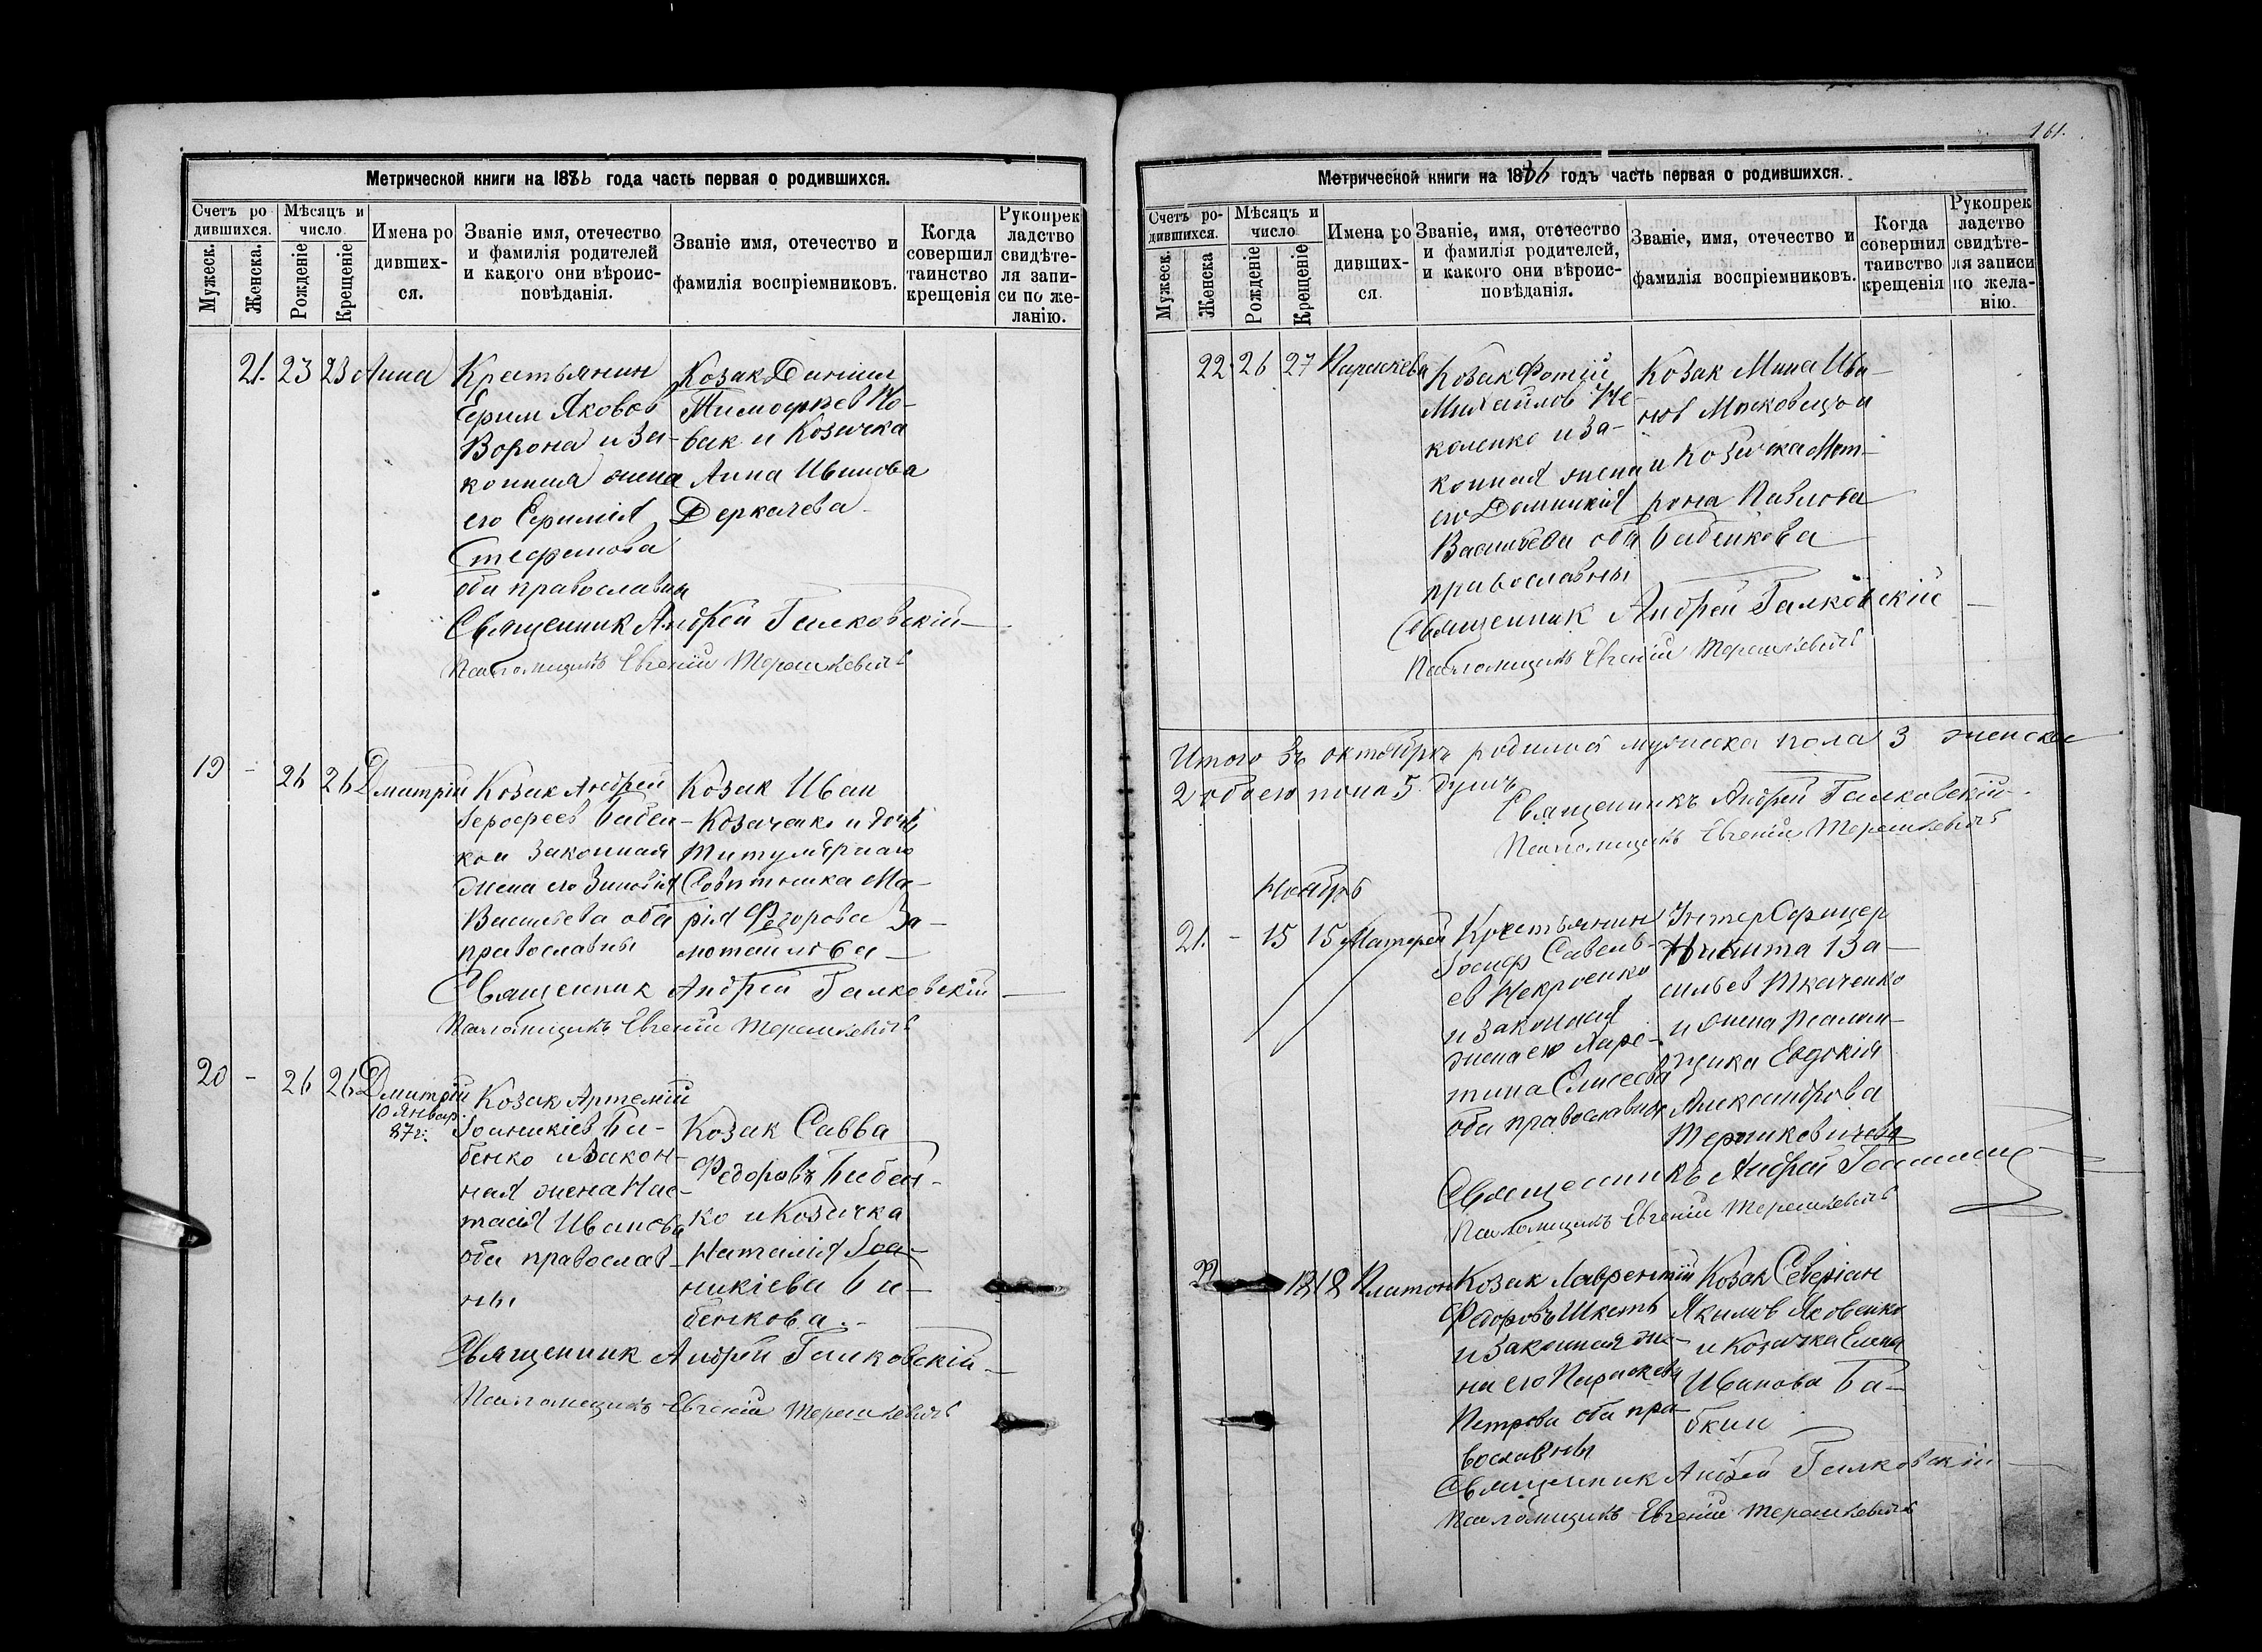 Метрической книги на 1886 года часть первая о родившихся.
Счетъ ро
дившихся.
Мужеск.
Женска.
Мѣсяцъ и
число
Рожденіе
Крещеніе
Имена ро
дивших-
ся.
Званіе имя, отечество
и фамилія родителей
и какого они вѣроис-
повѣданія.
Званіе имя, отечество и
фамилія воспріемниковъ.
Когда
совершил
таинство
крещенія
Рукоприк
ладство
свидѣте-
ля запи-
си по же-
ланію.
21. 23 23 Анна
Крестьянин
Ефим Яковов
Ворона и За-
конная жена
его Ефимія
Стефанова
оба православны
Козак Даниил
Тимофеев Но-
вак и Козачка
Анна Иванова
Деркачева
Священник Андрей Галковскій
Псаломщикъ Евгеній Терешкевичъ
19 - 26 26 Дмитрій
Козак Андрей
Бабен-
ко и Законная
жена его Зиновія
Васильева оба
православны
Козак Иван
Козаченко и дочь
Титулярнаго
Совѣтника Ма-
рія Федорова За-
мотайлова
Священник Андрей Галковскій
Псаломщикъ Евгеній Терешкевичъ
20 - 26 26 Дмитрій
10 Январ.
87 г.
Козак Артемій
Іоаникіев Ба-
бенко и Закон-
ная жена Нас-
тасія Иванова
оба православ-
ны
Козак Савва
Федоровъ Бабен-
ко и Козачка
Наталія Іоа-
никіева Ба-
бенкова.
Священник Андрей Галковскій
Псаломщикъ Евгеній Терешкевичъ
161.
Метрической книги на 1886 годъ часть первая о родившихся.
Счетъ ро-
дившихся.
Мужеск.
Женска
Мѣсяцъ и
число
Рожденіе
Крещеніе
Имена ро
дивших-
ся.
Званіе, имя, отечество
и фамилія родителей,
и какого они вѣроис-
повѣданія.
Званіе, имя, отечество и
фамилія воспріемниковъ.
Когда
совершил
таинство
крещенія
Рукоприк
ладство
свидѣте-
ля записи
по жела-
нію.
22. 26 27 Параскева
Козак Фотій
Михайлов Че-
коленко и За-
конная жена
его Домникія
Васильева оба
православны
Козак Мина Ива-
нов Московец
и Козачка Мат-
рона Павлова
Бабенкова
Священник Андрей Галковскій
Псаломщикъ Евгеній Терешкевичъ
Итого въ октябрѣ родилось мужеска пола 3 женска
2 обоего пола 5 душъ
Священникъ Андрей Галковскій.
Псаломщикъ Евгеній Терешкевичъ
Ноябрь
21. - 15 15
Крестьянин
Іосиф Савель-
ев Некроенко
и Законная
жена его Хари-
тина Елисеева
оба православны
Унтер Офицер
Никита Ва-
сильев Ткаченко
и жена Псалом-
щика Евдокія
Александрова
Терешкевичева
Священникъ Андрей
Псаломщикъ Евгеній Терешкевичъ
22 18 18 Платон
Козак Лаврентій
Федоровъ Шкеть
и Законная же-
на его Параскева
Петрова оба пра-
вославны
Козак Северіан
Якимов Яковенко
и Козачка Елена
Иванова Ба-
бкин
Священник Андрей Галковскій
Псаломщикъ Евгеній Терешкевичъ